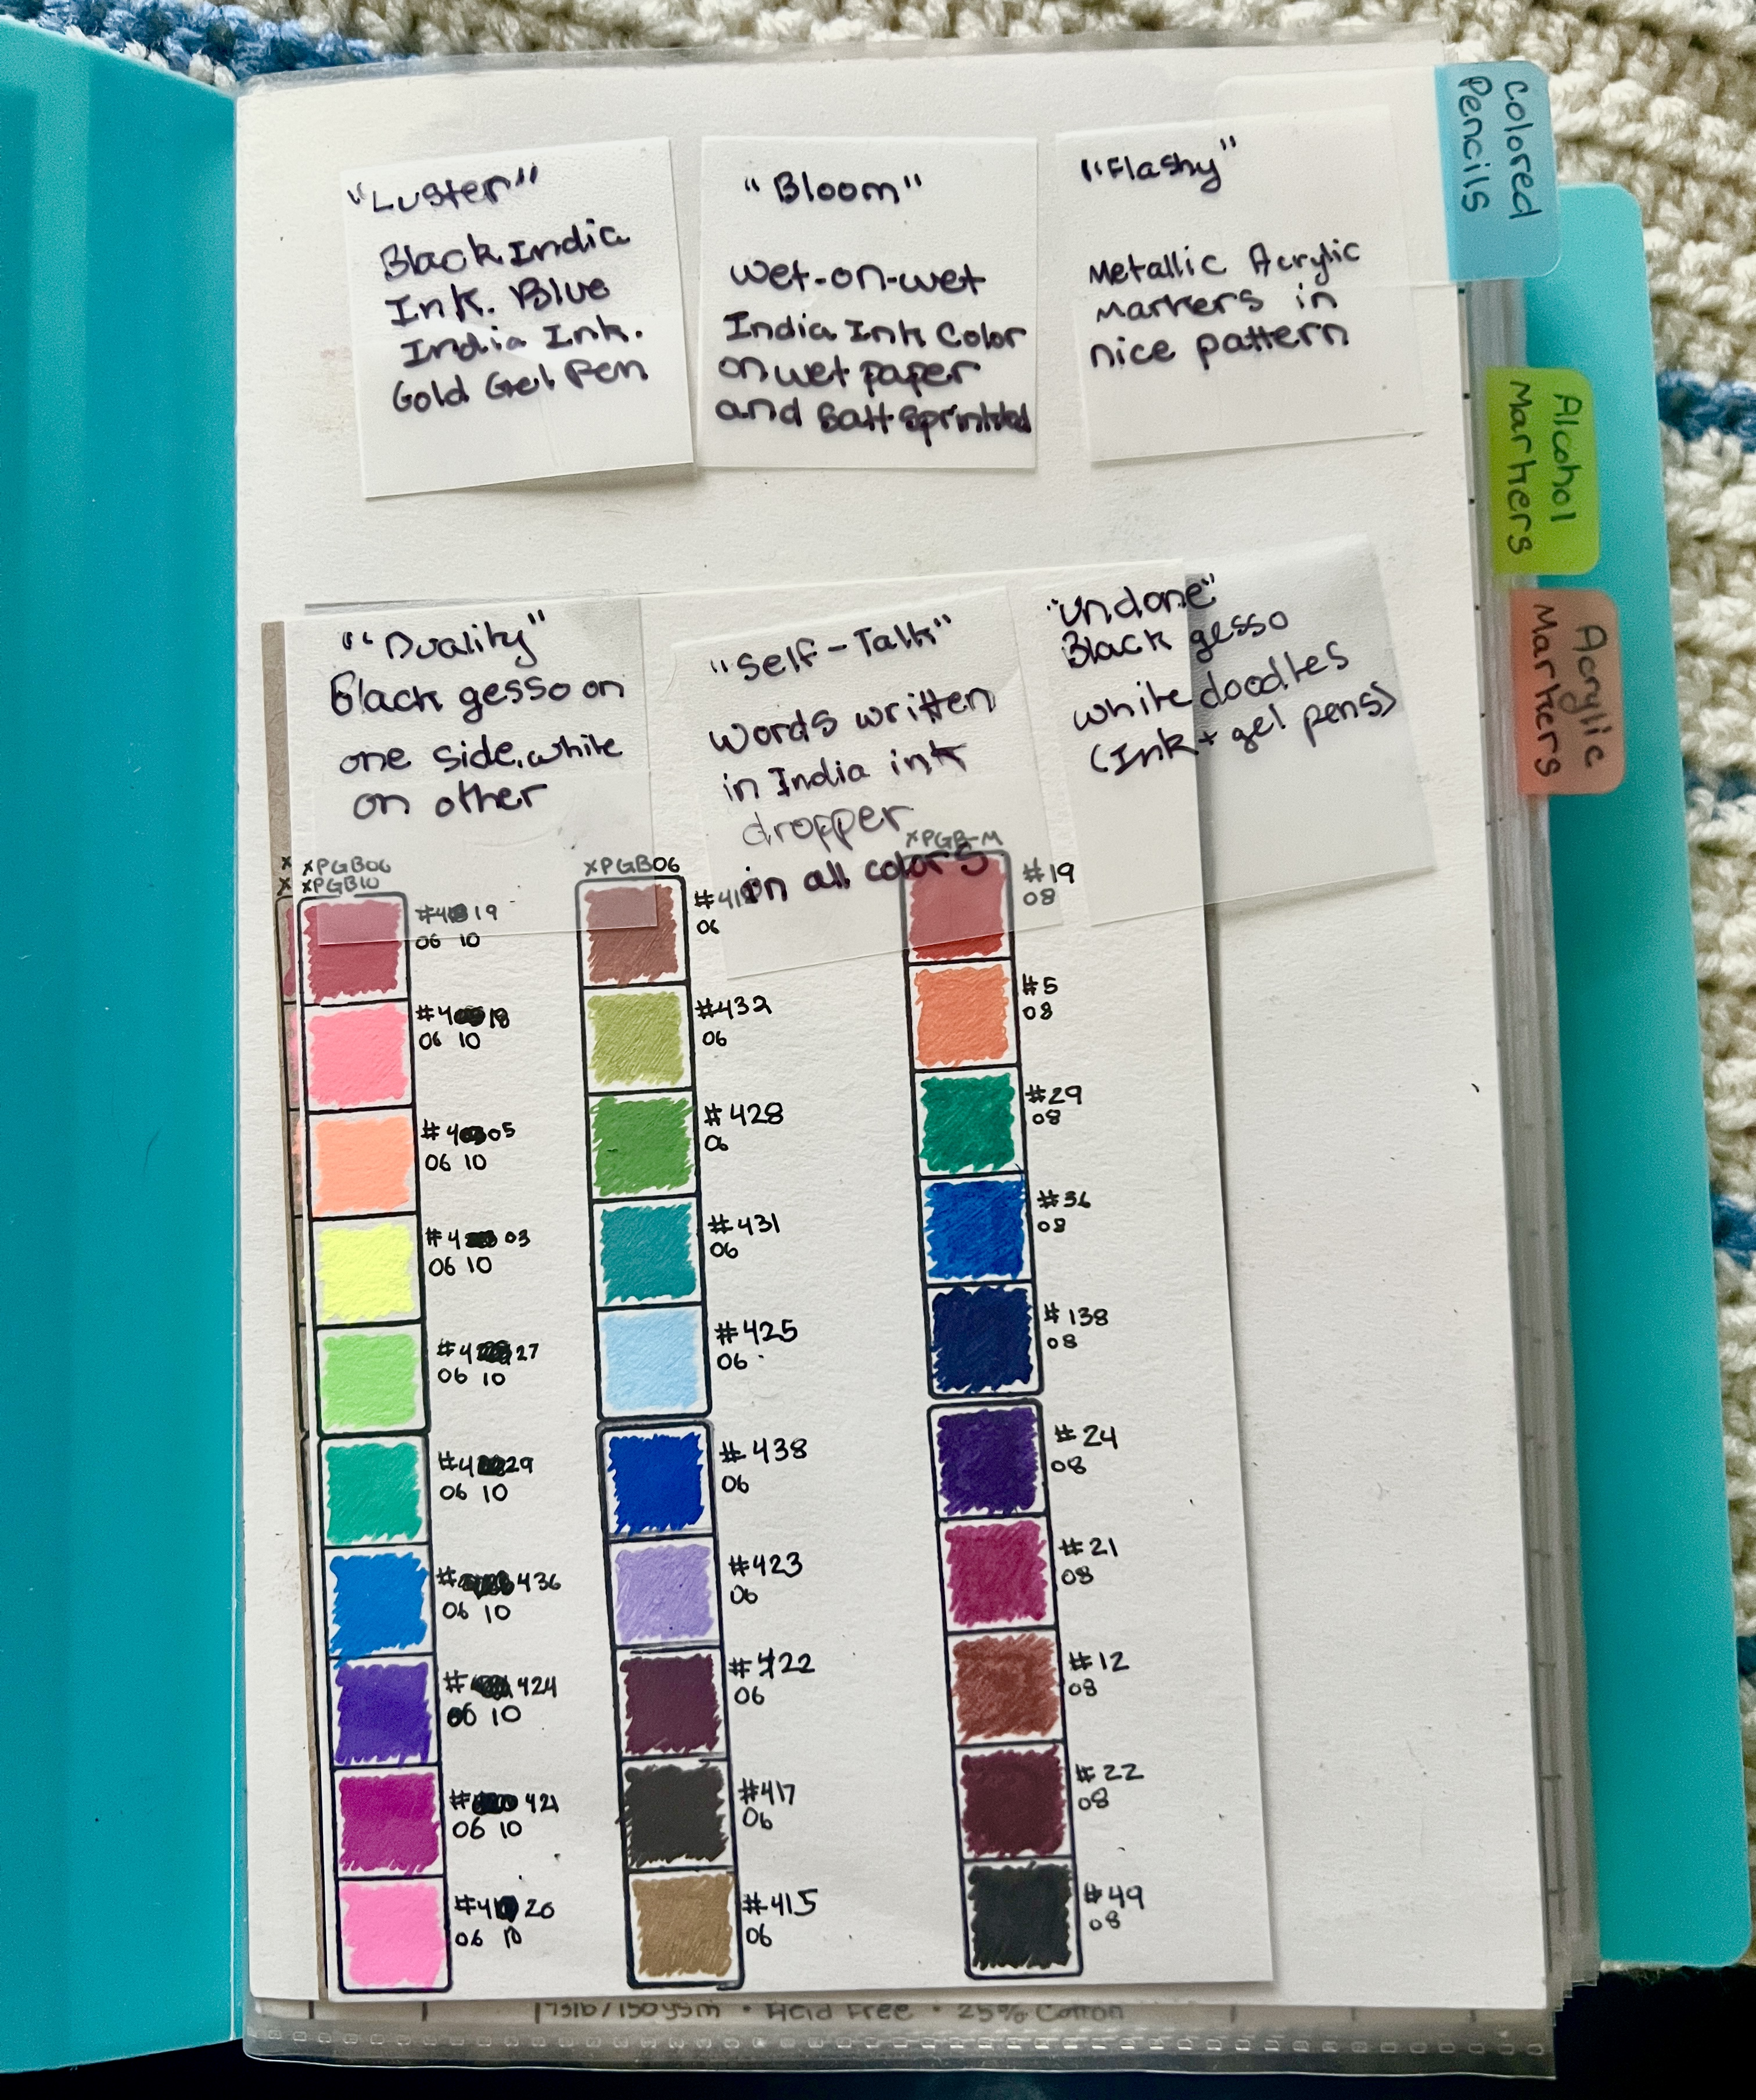 Colored
Pencils
Alcohol
Markers
Acrylic
Markers
"Luster"
Black India
Ink. Blue
India Ink.
Gold Gel Pen
"Bloom"
Wet-on-wet
India Ink Color
on wet paper
and Salt Sprinkled
"Flashy"
Metallic Acrylic
Markers in
nice pattern
"Duality"
Black gesso on
one side, white
on other
"Self-Talk"
Words written
in India ink
dropper
in all colors
"Undone"
Black gesso
white doodles
(Ink + gel pens)
x
x
xPGB06
xPGB10
#4 19
06 10
#4 18
06 10
#4 05
06 10
#4 03
06 10
#4 27
06 10
#4 29
06 10
# 436
06 10
# 424
06 10
# 421
06 10
#4 20
06 10
xPGB06
06
#432
06
#428
06
#431
06
#425
06
#438
06
#423
06
#422
06
#417
06
#415
06
xPGB-M
#19
08
#5
08
#29
08
#36
08
#138
08
#24
08
#21
08
#12
08
#22
08
#49
08
73lb/150gsm • Acid Free • 25% Cotton